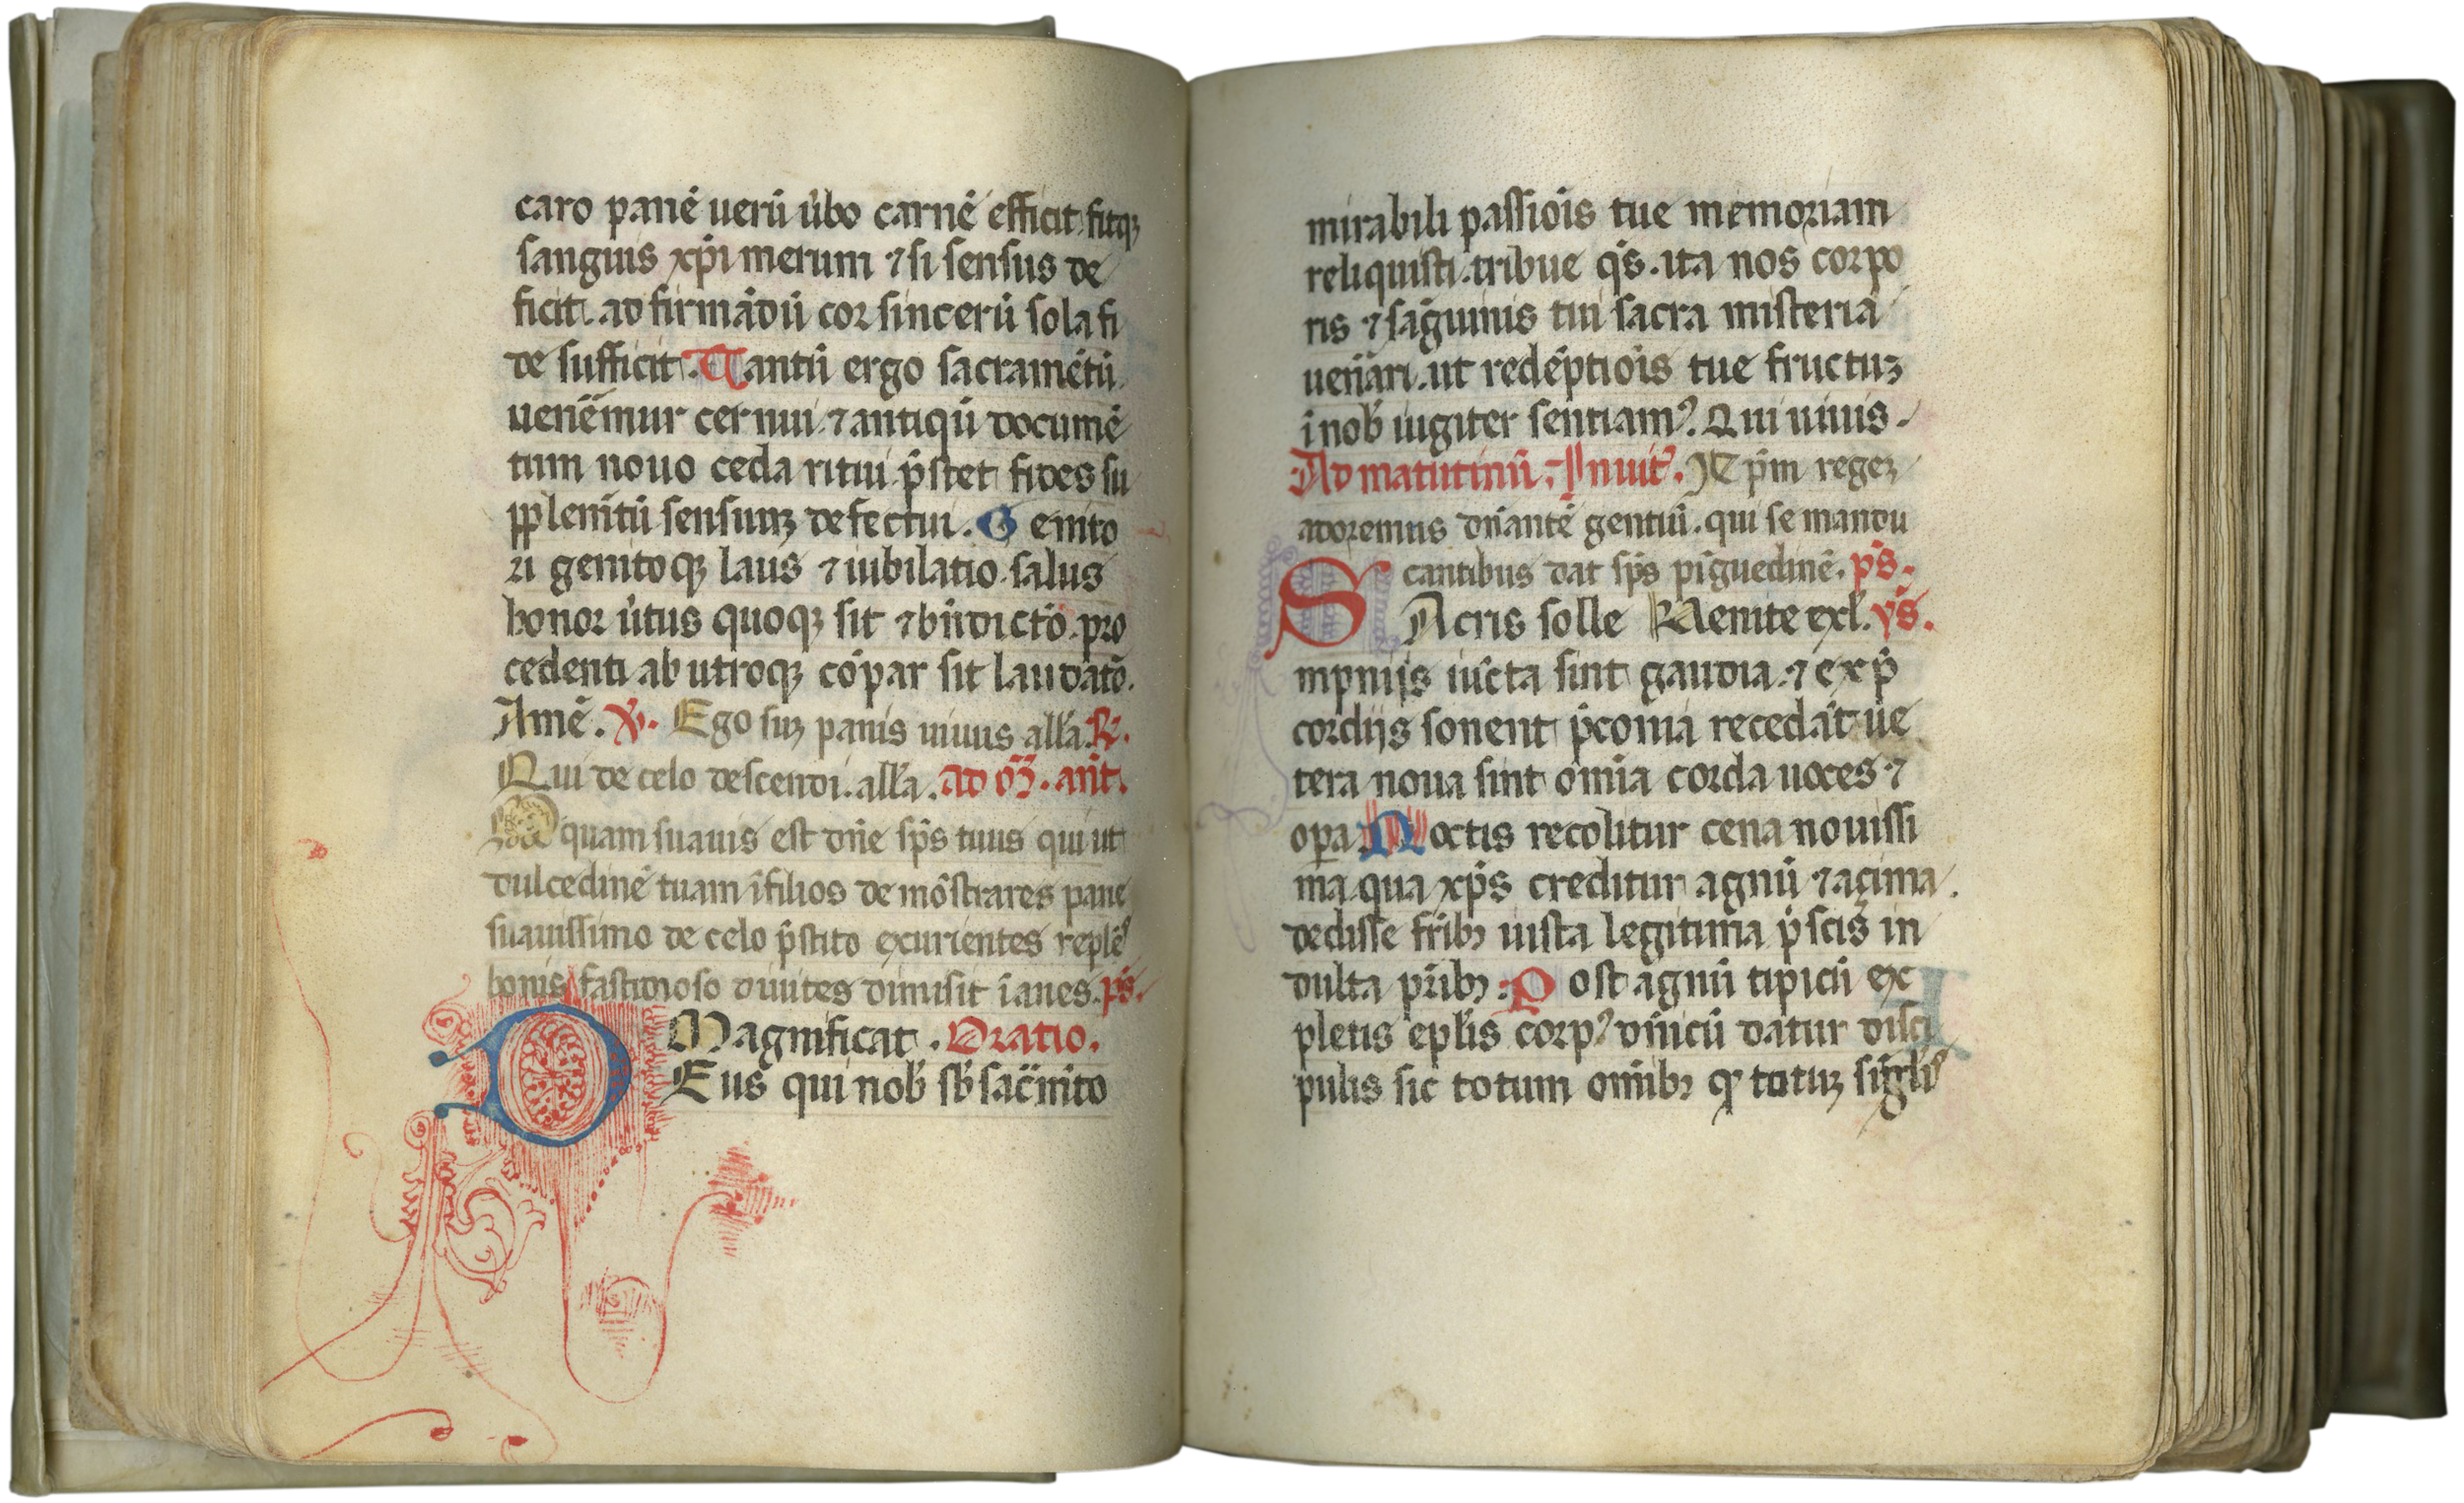 caro panē uerū ūbo carnē efficit fitqꝫ
sanguis xp̄i merum ⁊ si sensus de
ficit. ad firmādū cor sincerū sola fi
de sufficit. Tantū ergo sacramētū
uen̄ēmur cernui. ⁊ antiqū documē
tum nouo ceda ritui. p̄stet fides su
pplem̄tū sensuuꝫ defectui. Genito
ri genitoqꝫ laus ⁊ iubilatio. salus
honor ūtus quoqꝫ sit ⁊ bn̄dictō. pro
cedenti ab utroqꝫ cōpar sit laudatō.
Amē. ℣. Ego suꝫ panis uiuus all̄a. ℟.
Qui de celo descendi. all̄a. ad m̄. an̄t.
O quam suauis est dn̄e sp̄s tuus qui ut
dulcedinē tuam ī filios demōstrares pane
suauissimo de celo p̄stito exurientes replēs
bonis fastidioso diuites dimisit īanes. ps̄.
Magnificat. Oratio.
Deus qui nob̄ sb̄ sac̄m̄to
mirabili passiōis tue memoriam
reliquisti. tribue qs̄. ita nos corpo
ris ⁊ sāguinis tui sacra misteria
uen̄ari. ut redēptiōis tue fructuꝫ
ī nob̄ iugiter sentiamꝰ. Qui uiuis.
Ad matutinū. Inuit̄. Xp̄m regeꝫ
adoremus dn̄antē gentiū. qui se mandu
cantibus dat sp̄s pīguedinē. ps̄.
Sacris solle Uenite exl̄. ys̄.
mpnijs iūcta sint gaudia. ⁊ ex p̄
cordijs sonent p̄conia recedāt ue
tera noua sint om̄ia corda uoces ⁊
opa. Noctis recolitur cena nouissi
ma qua xp̄s creditur agnū ⁊ açima
dedisse fr̄ibꝫ iusta legitima p̄scis in
dulta pr̄ibꝫ. Post agnū tipicū ex
pletis epl̄is corpꝰ dn̄icū datur disci
pulis sic totum om̄ibꝫ qꝫ totuꝫ sigl̄is